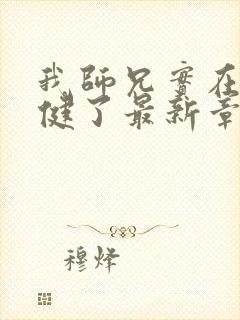 我師兄實在
健了最新章
穆烽